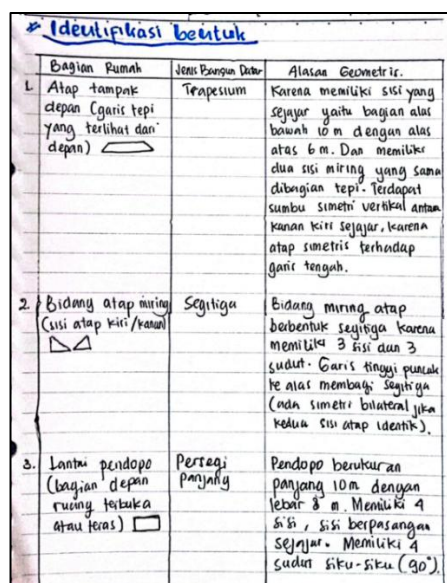 * Identifikasi bentuk
Bagian Rumah
Jenis Bangun Datar
Alasan Geometris.
1. Atap tampak
depan (garis tepi
yang terlihat dari
depan)
Trapesium
Karena memiliki sisi yang
sejajar yaitu bagian alas
bawah 10 m dengan alas
atas 6 m. Dan memiliki
dua sisi miring yang sama
dibagian tepi. Terdapat
sumbu simetri vertikal antara
kanan kiri sejajar, karena
atap simetris terhadap
garis tengah.
2. Bidang atap miring
(sisi atap kiri/kanan)
Segitiga
Bidang miring atap
berbentuk segitiga karena
memiliki 3 sisi dan 3
sudut. Garis tinggi puncak
ke alas membagi segitiga
(ada simetri bilateral jika
kedua sisi atap identik).
3. Lantai pendopo
(bagian depan
ruang terbuka
atau teras)
Persegi
panjang
Pendopo berukuran
panjang 10m dengan
lebar 8 m. Memiliki 4
sisi, sisi berpasangan
sejajar. Memiliki 4
sudut siku-siku (90°).